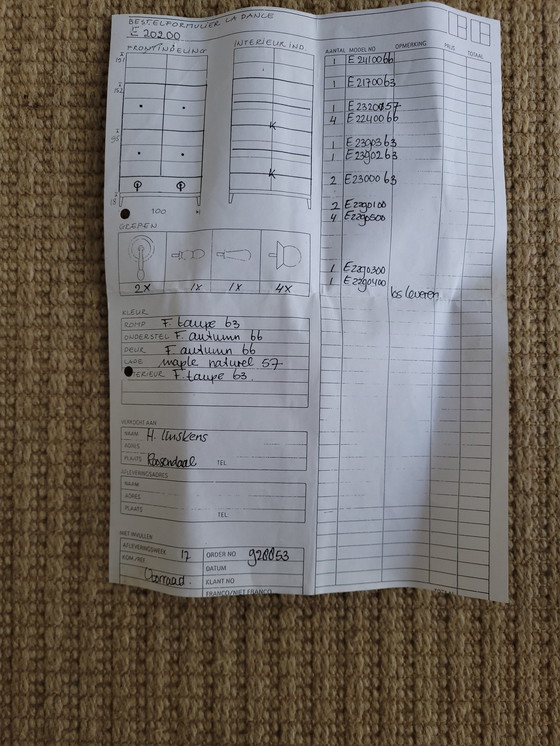 BESTELFORMULIER LA DANCE
E 20200
FRONTINDELING
INTERIEUR IND.
191
152
95
18
K
K
100
GREPEN
2X 1X 1X 4X
KLEUR
ROMP F. taupe 63
ONDERSTEL F. autumn 66
DEUR F autumn 66
LADE maple naturel 57
TERIEUR F taupe 63
VERKOCHT AAN
NAAM H.
ADRES
PLAATS Roosendaal TEL.
AFLEVERINGSADRES
NAAM
ADRES
PLAATS TEL.
NIET INVULLEN
AFLEVERINGSWEEK 17
ORDER NO 928853
DATUM
KLANT NO
FRANCO/NIET FRANCO
AANTAL MODEL NO. OPMERKING PRIJS TOTAAL
1 E2410066
1 E2170063
1 E2320057
4 E2240066
1 E2390363
1 E2390263
2 E2300063
2 E2290100
4 E2290500
1 E2290300
1 E2290400
los leveren
TOTAAL